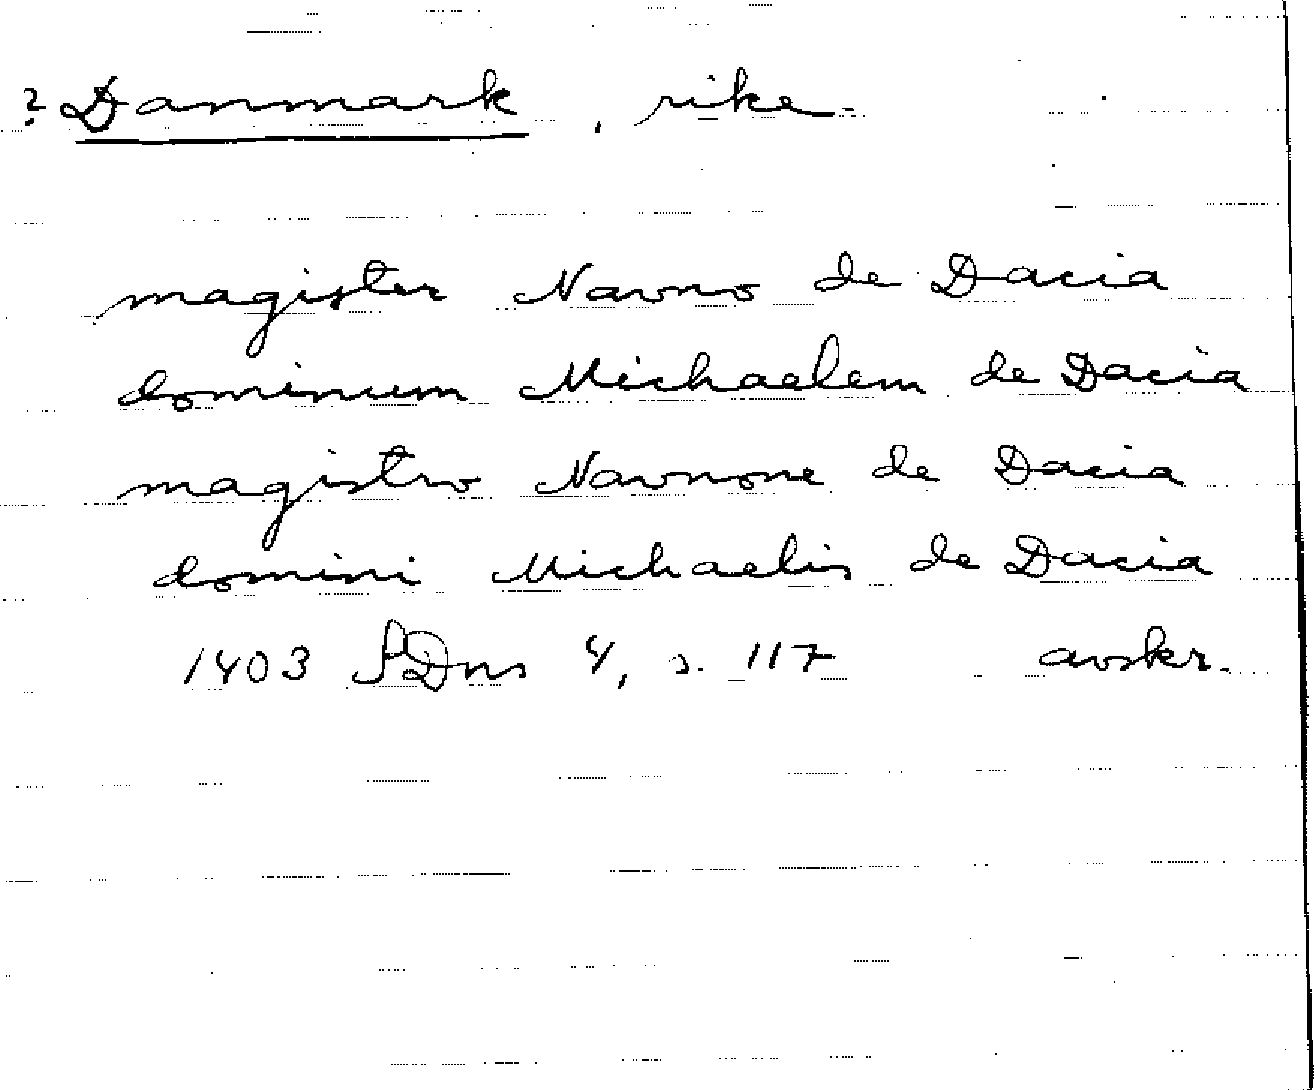 ? Danmark, rike
magister Navno de Dacia
dominum Michaelem de Dacia
magistro Navnone de Dacia
domini Michaelis de Dacia
1403 SDns 4, s. 117 avskr.